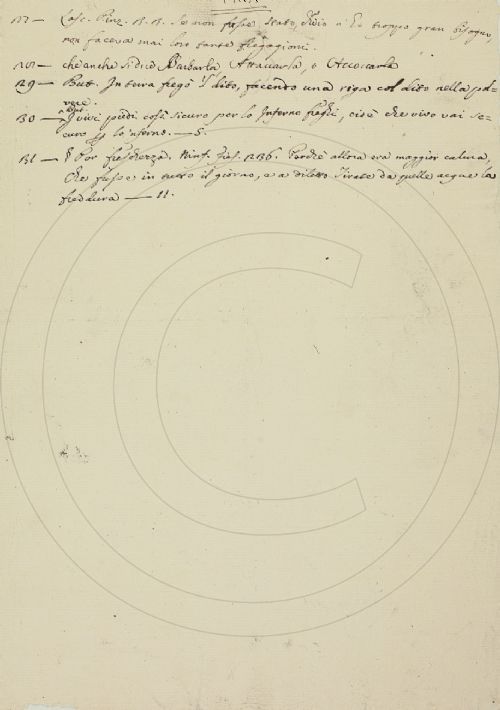 27 — Lasc. Pinz. 2. 2. Se non fusse stato, ch'io n'ho troppo gran bisogno,
non faceva mai loro tante fregagioni.
28 — che anche si dice Barbarla Attaccarla, o Accoccarla
29 — But. Intera fregò 'l dito, facendo una riga col dito nella pol=
vere.
30 — I vivi piedi così sicuro per lo Inferno freghi, cioè che vivo vai se=
curo lo 'nferno. — S.
31 — § Per freschezza. Ninf. Fies. 236. Perchè allora era maggior calura,
Che fusse in tutto il giorno, e a diletto Tirate da quelle acque la
freddura — 11.